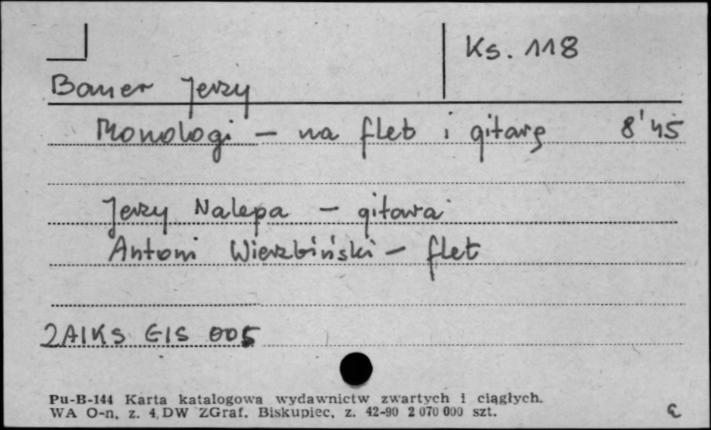 Ks. 118
Bauer Jerzy
Monologi – na flet i gitarę 8'45
Jerzy Nalepa – gitara
Antoni Wierzbiński – flet
ZAIKS GIS 005
Pu-B-144 Karta katalogowa wydawnictw zwartych i ciągłych.
WA O-n. z. 4. DW ZGraf. Biskupiec, z. 42-90 2 070 000 szt.